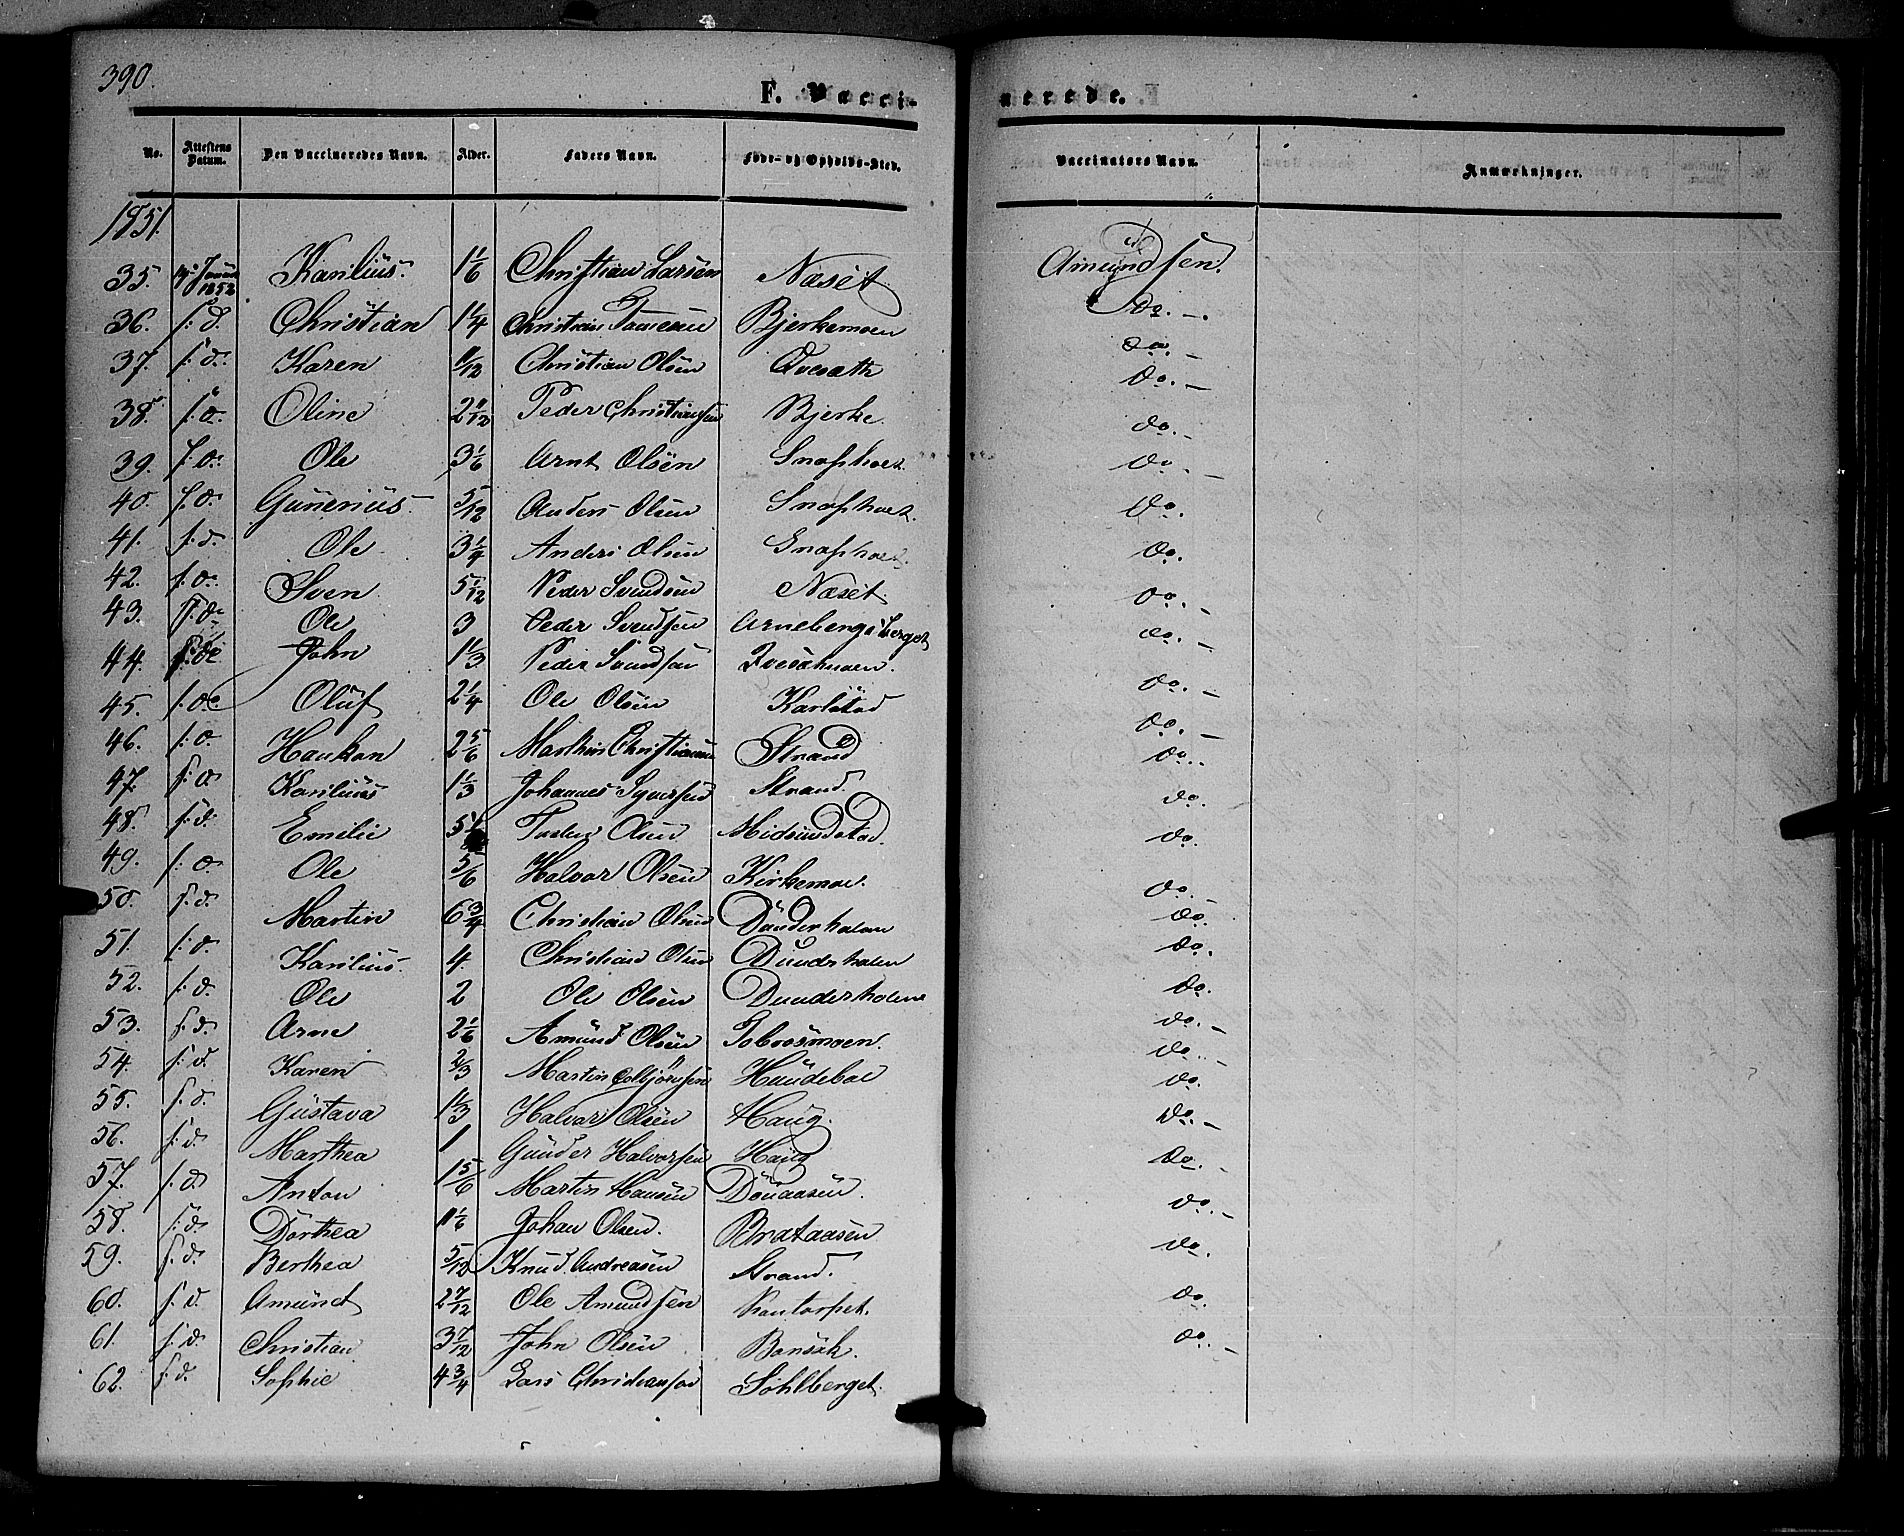 390.
F. Vacci-
nerede.
No.
Attestens Datum.
Den Vaccineredes Navn.
Alder.
Faders Navn.
Føde- og Opholds-Sted.
Vaccinators Navn.
Anmærkninger.
1851.
35. 1852 Karilius. 1 1/6 Christian Larsen Næset Amundsen.
36. s: d. Christian 1 1/4 Christian Bjerkemoen do. -
37. s: d. Karen 11/12 Christian Olsen do. -
38. s: d. Oline 2 11/12 Peder Christiansen Bjerke do. -
39. s: d. Ole 3 1/6 Arnt Olsen Snaphoet do. -
40. s: d. Gunerius 5/12 Anders Olsen Snaphoet. do. -
41. s: d. Ole 3 1/4 Anders Olsen Snaphoet do.
42. s: d. Sven 5/12 Peder Svendsen Næset do.
43. s: d. Ole 3 Peder Svendsen Arnebergsberget do. -
44. s: d. John 1 1/3 Peder Svendsen do. -
45. s: d. Oluf 2 1/4 Ole Olsen Karlstad do. -
46. s: d. Haukan 2 5/6 Mathis Christiansen Strand do. -
47. s: d. Karilius 1 1/3 Johannes Syversen Strand. do.
48. s: d. Emilie 5 Olsen Midsundstad. do.
49. s: d. Ole 5/6 Halvor Olsen Kirkemoe. do.
50. s: d. Martin 6 3/4 Christian Olsen Dunderholen do. -
51. s: d. Karilius. 4. Christian Olsen Dunderholen do.
52. s: d. Ole 2 Ole Olsen Dunderholene do.
53. s: d. Arne 2 1/6 Amund Olsen do.
54. s: d. Karen 2/3 Martin Colbjørnsen Hundeboe do. -
55. s: d. Gustava 1 1/3 Halvor Olsen Haug. do.
56. s: d. Marthea 1 Gunder Halvorsen Haug do.
57. s: d. Anton 1 5/6 Martin Hansen Dönaasen. do. -
58. s: d. Dorthea 1 1/6 Johan Olsen. Brataasen do. -
59. s: d. Berthea 5/12 Knud Andreasen Strand. do. -
60. s: d. Amund 2 7/12 Ole Amundsen Kontorpet. do.
61. s: d. Christian 3 7/12 John Olsen Bonsak. do.
62. s: d. Sophie 4 3/4 Lars Christiansen Sohlberget. do. -